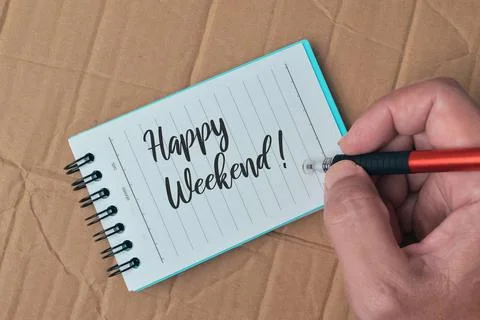 Happy
Weekend!